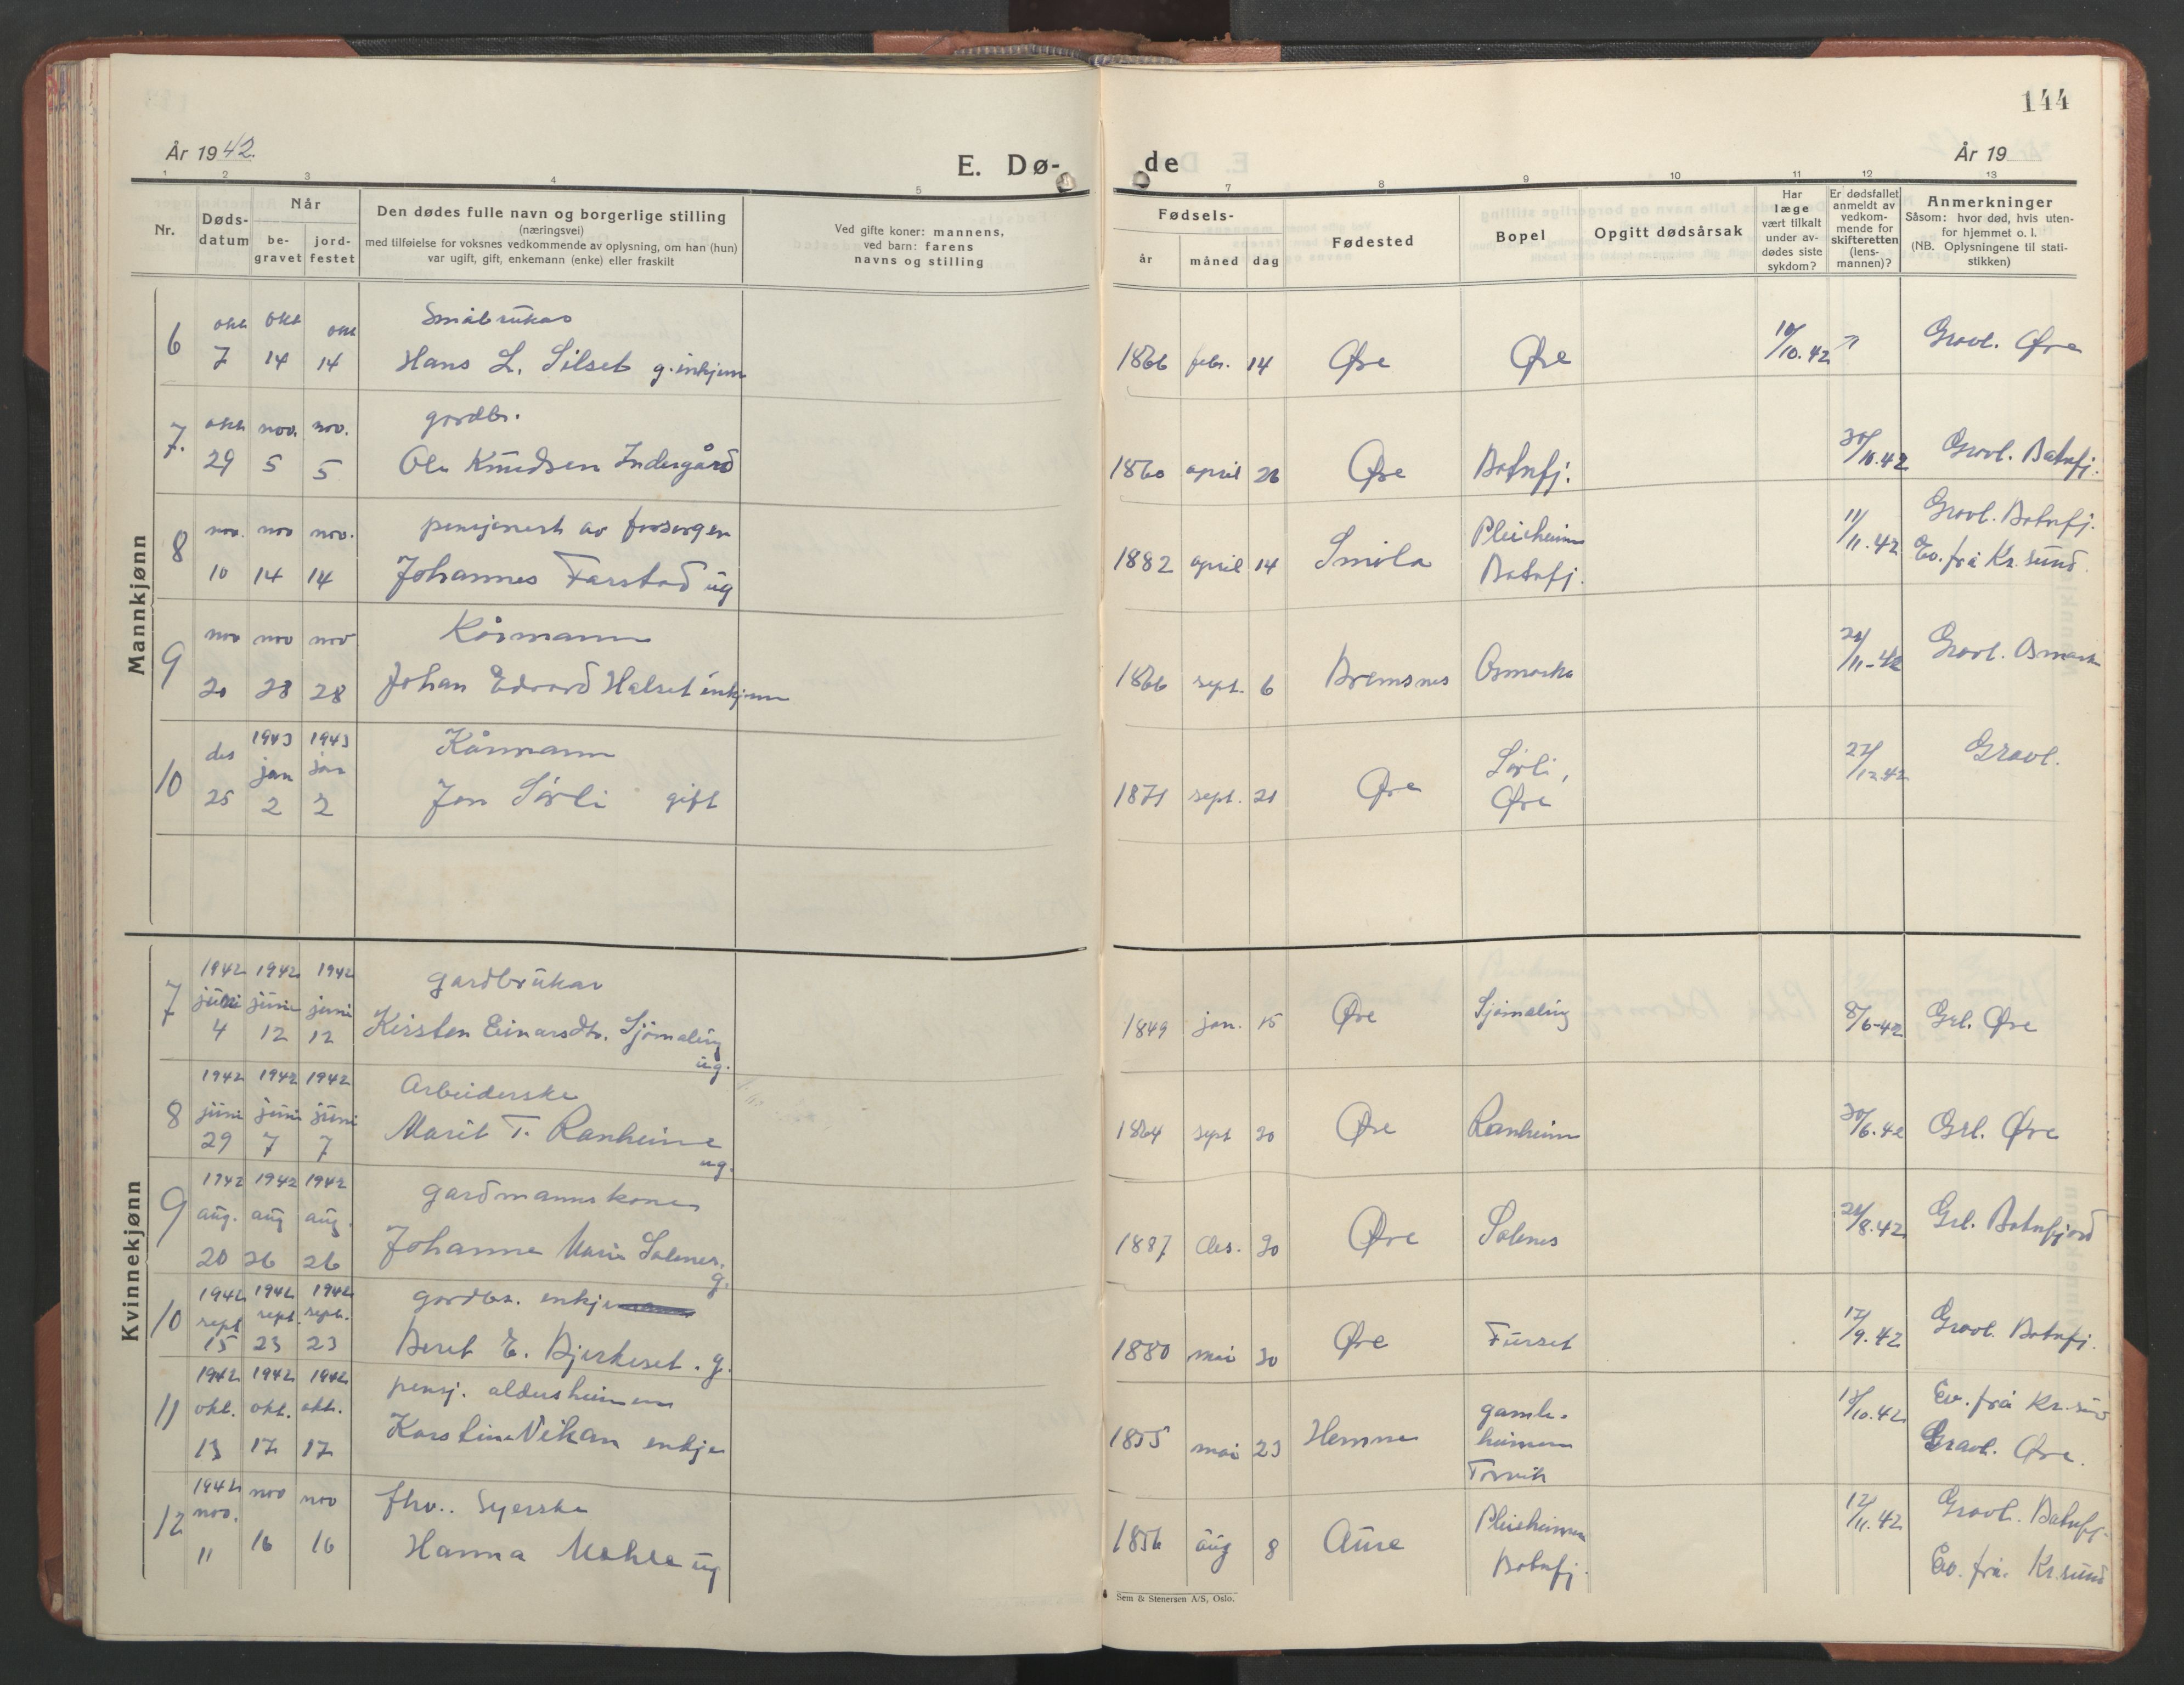 144
År 1942.
E. Dø-
de
År 19
1 2 3 4 5
7 8 9 10 11 12 13
Nr.
Døds-
datum
Når
be-
gravet
jord-
festet
Den dødes fulle navn og borgerlige stilling
(næringsvei)
med tilføielse for voksnes vedkommende av oplysning, om han (hun)
var ugift, gift, enkemann (enke) eller fraskilt
Ved gifte koner: mannens,
ved barn: farens
navns og stilling
Fødsels-
år måned dag
Fødested
Bopel
Opgitt dødsårsak
Har
læge
vært tilkalt
under av-
dødes siste
sykdom?
Er dødsfallet
anmeldt av
vedkom-
mende for
skifteretten
(lens-
mannen)?
Anmerkninger
Såsom: hvor død, hvis uten-
for hjemmet o. l.
(NB. Oplysningene til stati-
stikken)
Mannkjønn
okt okt okt Småbrukar
6 7 14 14 Hans L. Silset g. 1866 febr. 14 Øre Øre 10/10.42 Gravl. Øre
okt. nov. nov. gardbr.
7. 29 5 5 Ole Knudsen Indergård 1860 april 26 Øre Batnfj. 30/10.42 Gravl. Batnfj.
nov. nov nov. pensjonert av forsorgen Pleieheimen Gravl. Batnfj.
8 10 14 14 Johannes Farstad ug 1882 april 14 Smøla Batnfj. 11/11.42 Ev. frå Kr.sund.
nov nov nov Kårmann
9 20 28 28 Johan Edvard Halset enkjem 1866 sept. 6 Bremsnes Osmarka 24/11-42 Gravl. Osmark
des 1943 1943 Kårmann
jan jan Sørli,
10 25 2 2 Jon Sørli gift 1871 sept. 21 Øre Øre 27/12.42 Gravl.
Kvinnekjønn
1942 1942 1942 gardbrukar
7 juni juni juni
4 12 12 Kirsten Einarsdtr. Sjømæling 1849 jan. 15 Øre Sjømæling 8/6-42 Grl. Øre
ug.
1942 1942 1942 Arbeiderske
8 juni juni juni
29 7 7 Marit T. Ranheim 1864 sept 20 Øre Ranheim 30/6.42 Grl. Øre
ug.
1942 1942 1942 gardmannskone
9 aug. aug aug.
20 26 26 Johanne Marie Solenes. 1887 des. 30 Øre Solenes 24/8.42 Grl. Batnfjord
g.
1942 1942 1942 gardbr. enkje
10 sept sept. sept.
15 23 23 Beret E. Bjerkeset. g. 1880 mai 30 Øre Furset 17/9.42 Gravl. Batnfj.
1942 1942 1942 pensj. aldersheimen gamle- Ev. frå Kr.sund
11 okt. okt. okt. heimen
13 17 17 Karstine Vikan enkje 1855 mai 23 Hemne Torvik 13/10.42 Gravl. Øre.
1942 nov nov fhv. Syerske Pleieheimen Gravl. Batnfj.
12 nov.
11 16 16 Hanna ug 1856 aug 8 Aure Batnfj. 12/11.42 Ev. frå Kr.sund
Sem & Stenersen A/S, Oslo.